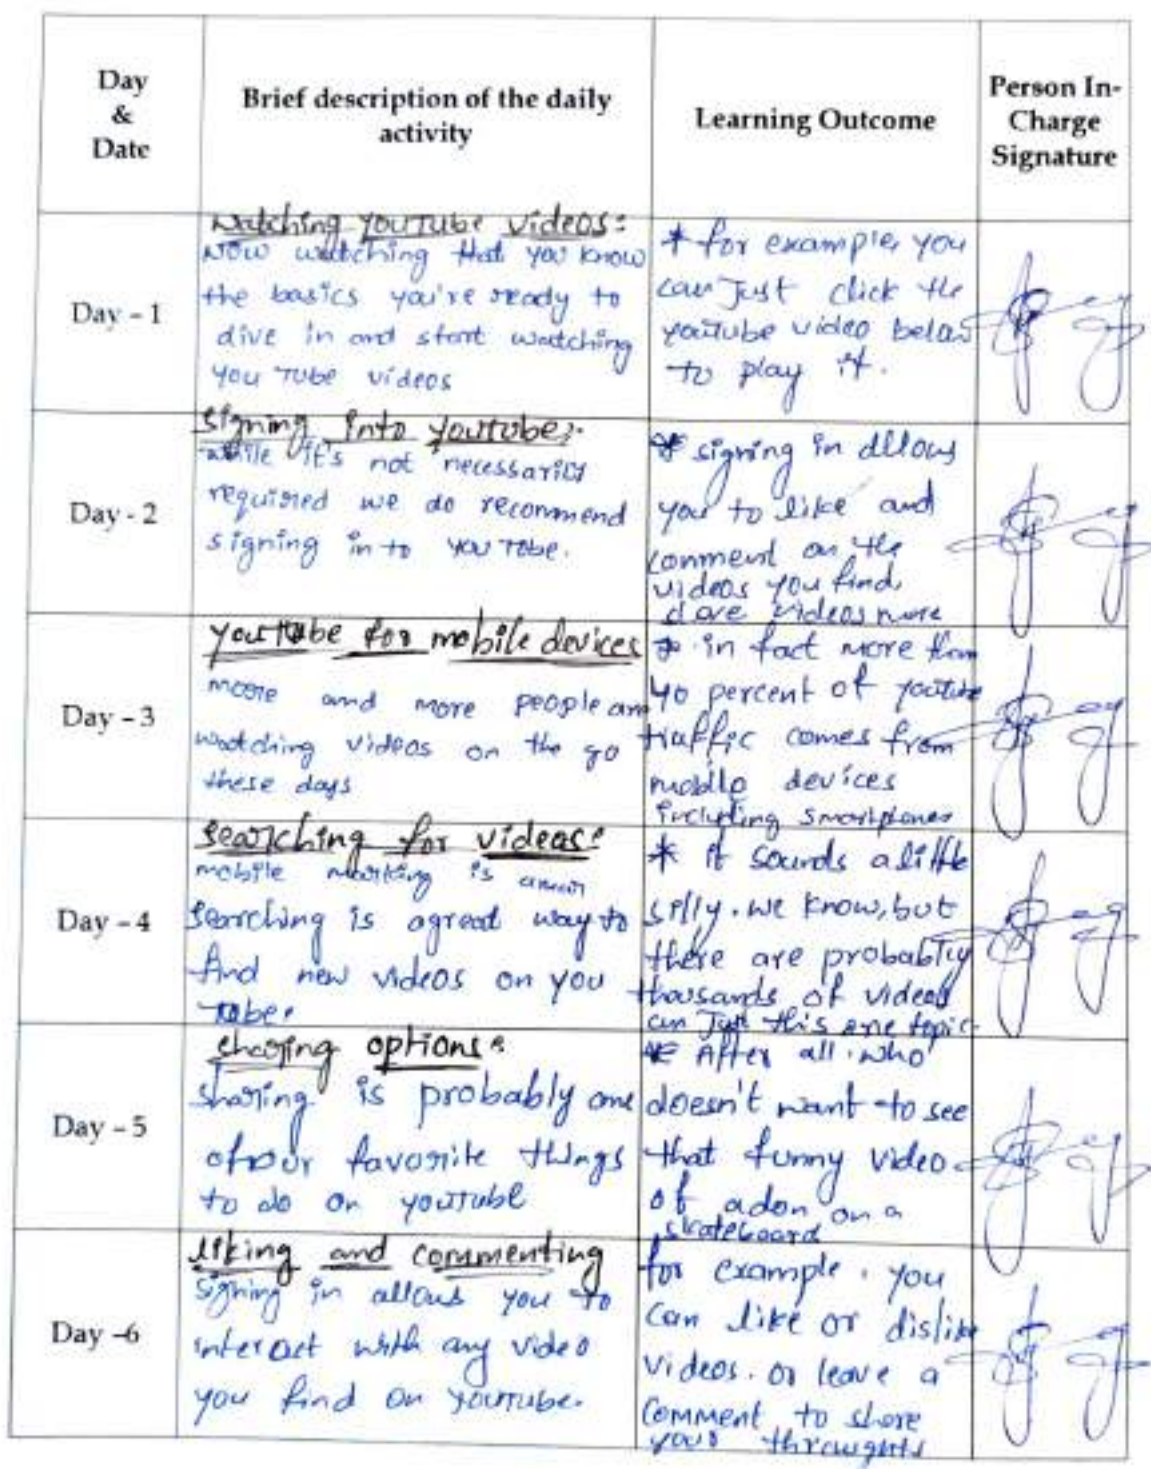 Day
&
Date
Brief description of the daily
activity
Learning Outcome
Person In-
Charge
Signature
Day - 1
Watching YouTube videos:
Now watching that you know
the basics you're ready to
dive in and start watching
you Tube videos
* for example, you
can Just click the
youtube video below
to play it.
Day - 2
Signing into youtube:-
while it's not necessarily
required we do recommend
signing in to youTube.
* signing in allows
you to like and
comment on the
videos you find,
videos more
Day - 3
youtube for mobile devices
more and more people are
watching videos on the go
these days
* in fact more than
40 percent of youtube
traffic comes from
mobile devices
including smartphones
Day - 4
searching for videos:
mobile is
searching is a great way to
find new videos on you
tube.
* it sounds a little
silly. we know, but
there are probably
thousands of videos
on Just this one topic.
Day - 5
sharing options:
sharing is probably one
of our favorite things
to do on youTube
* After all. who
doesn't want to see
that funny video
of a on a
skateboard
Day -6
liking and commenting
signing in allows you to
interact with any video
you find on youtube.
for example. you
can like or dislike
videos. or leave a
comment to share
your throughts